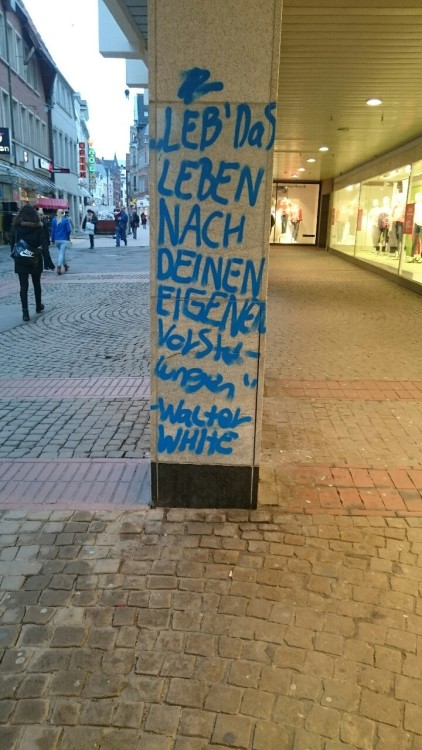 „LEB' DaS
LEBEN
NACH
DEINEN
EIGENEN
VorStel-
lungen"
-Walter
WHITE